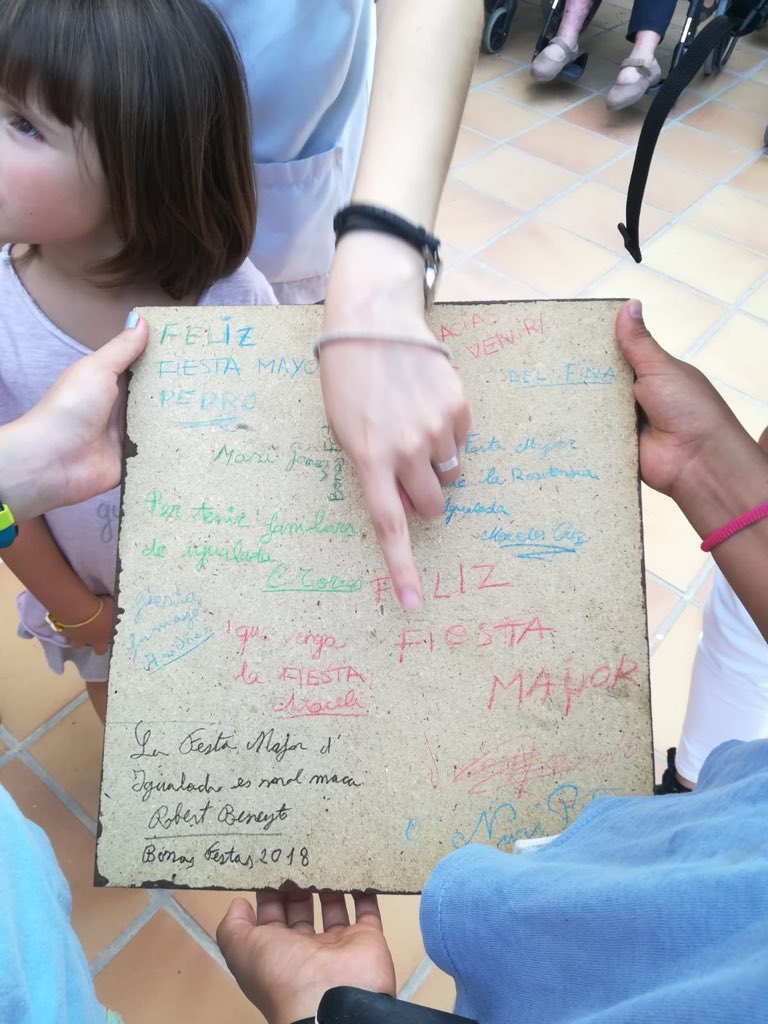 FELIZ
FIESTA MAYO
PEDRO
ACIAS
VENIR!
DEL FINA
Mari
Festa Major
la Residencia
Igualada
Mercedes Cruz
Per tenir familiars
de igualada
C Torres
FELIZ
FIESTA
MAYOR
¡que venga
la FIESTA
Araceli
La Festa Major d'
Igualada es molt maca
Robert Beneyto
Bonas Festas 2018
Nuri